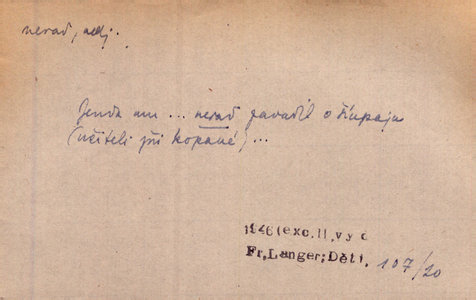 nerad, adj.
Jenda mu ... nerad zavadil o štupaju
(učiteli při kopané) ...
1946 (exc. II. vyd
Fr. Langer: Děti. 107/20